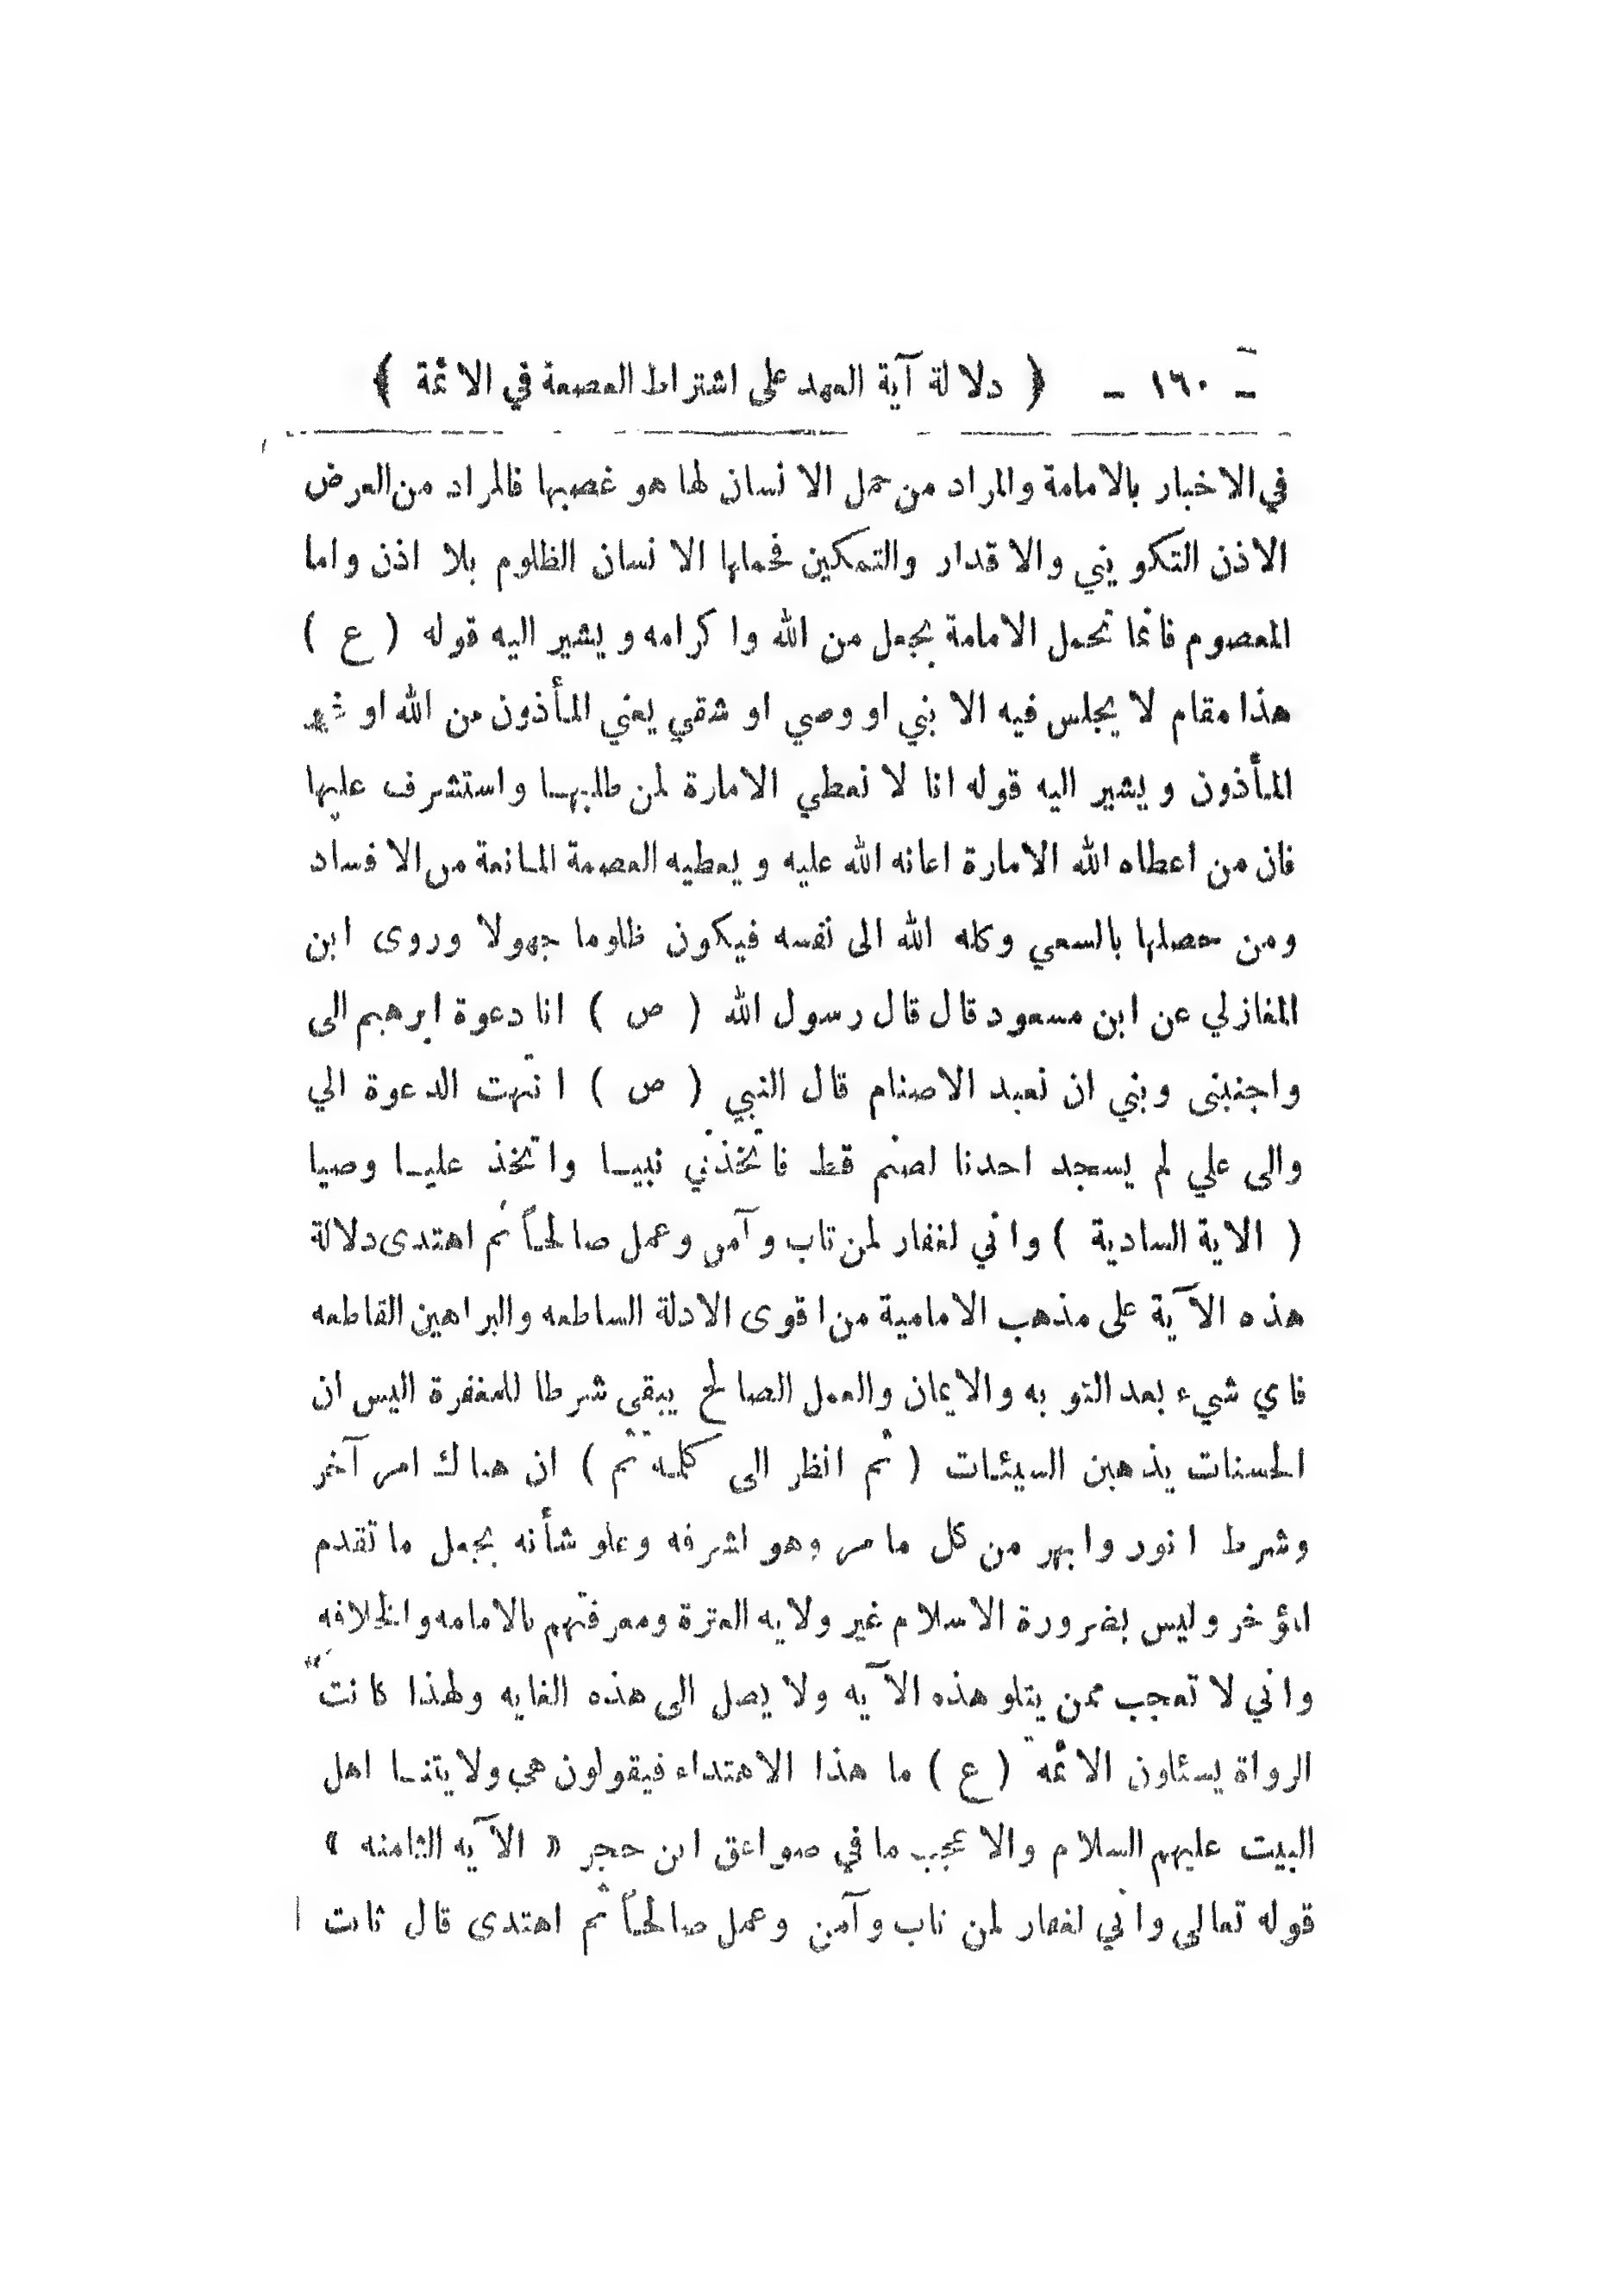 - ١٦٠ - ﴿ دلالة آية العهد على اشتراط العصمة في الائمة ﴾
في الاخبار بالامامة والمراد من حمل الانسان لها هو غصبها فالمراد من العرض
الاذن التكويني والاقدار والتمكين فحملها الانسان الظلوم بلا اذن واما
المعصوم فانما تحمل الامامة بجعل من الله واكرامه ويشير اليه قوله ( ع )
هذا مقام لا يجلس فيه الا نبي او وصي او شقي يعني المأذون من الله او
المأذون ويشير اليه قوله انا لا نعطي الامارة لمن طلبها واستشرف عليها
فان من اعطاه الله الامارة اعانه الله عليه ويعطيه العصمة المانعة من الافساد
ومن حصلها بالسعي وكله الله الى نفسه فيكون ظلوما جهولا وروى ابن
المغازلي عن ابن مسعود قال قال رسول الله ( ص ) انا دعوة ابرهيم الى
واجنبنى وبني ان نعبد الاصنام قال النبي ( ص ) انتهت الدعوة الي
والى علي لم يسجد احدنا لصنم قط فاتخذني نبيا واتخذ عليا وصيا
( الاية السادية ) واني لغفار لمن تاب وآمن وعمل صالحاً ثم اهتدى دلالة
هذه الآية على مذهب الامامية من اقوى الادلة الساطعه والبراهين القاطعه
فاي شيء بعد التوبه والايمان والعمل الصالح يبقى شرطا للمغفرة اليس ان
الحسنات يذهبن السيئات ( ثم انظر الى كلمة ثم ) ان هناك امر آخر
وشرط انور وابهر من كل ما مر وهو اشرفه وعلو شأنه يجعل ما تقدم
المؤخر وليس بضرورة الاسلام غير ولايه العترة ومعرفتهم بالامامه والخلافه
واني لا تعجب ممن يتلو هذه الآيه ولا يصل الى هذه الغايه ولهذا كانت
الرواة يسئلون الائمه ( ع ) ما هذا الاهتداء فيقولون هي ولايتنا اهل
البيت عليهم السلام والاعجب ما في صواعق ابن حجر « الآيه الثامنه »
قوله تعالى واني لغفار لمن تاب وآمن وعمل صالحاً ثم اهتدى قال ثابت